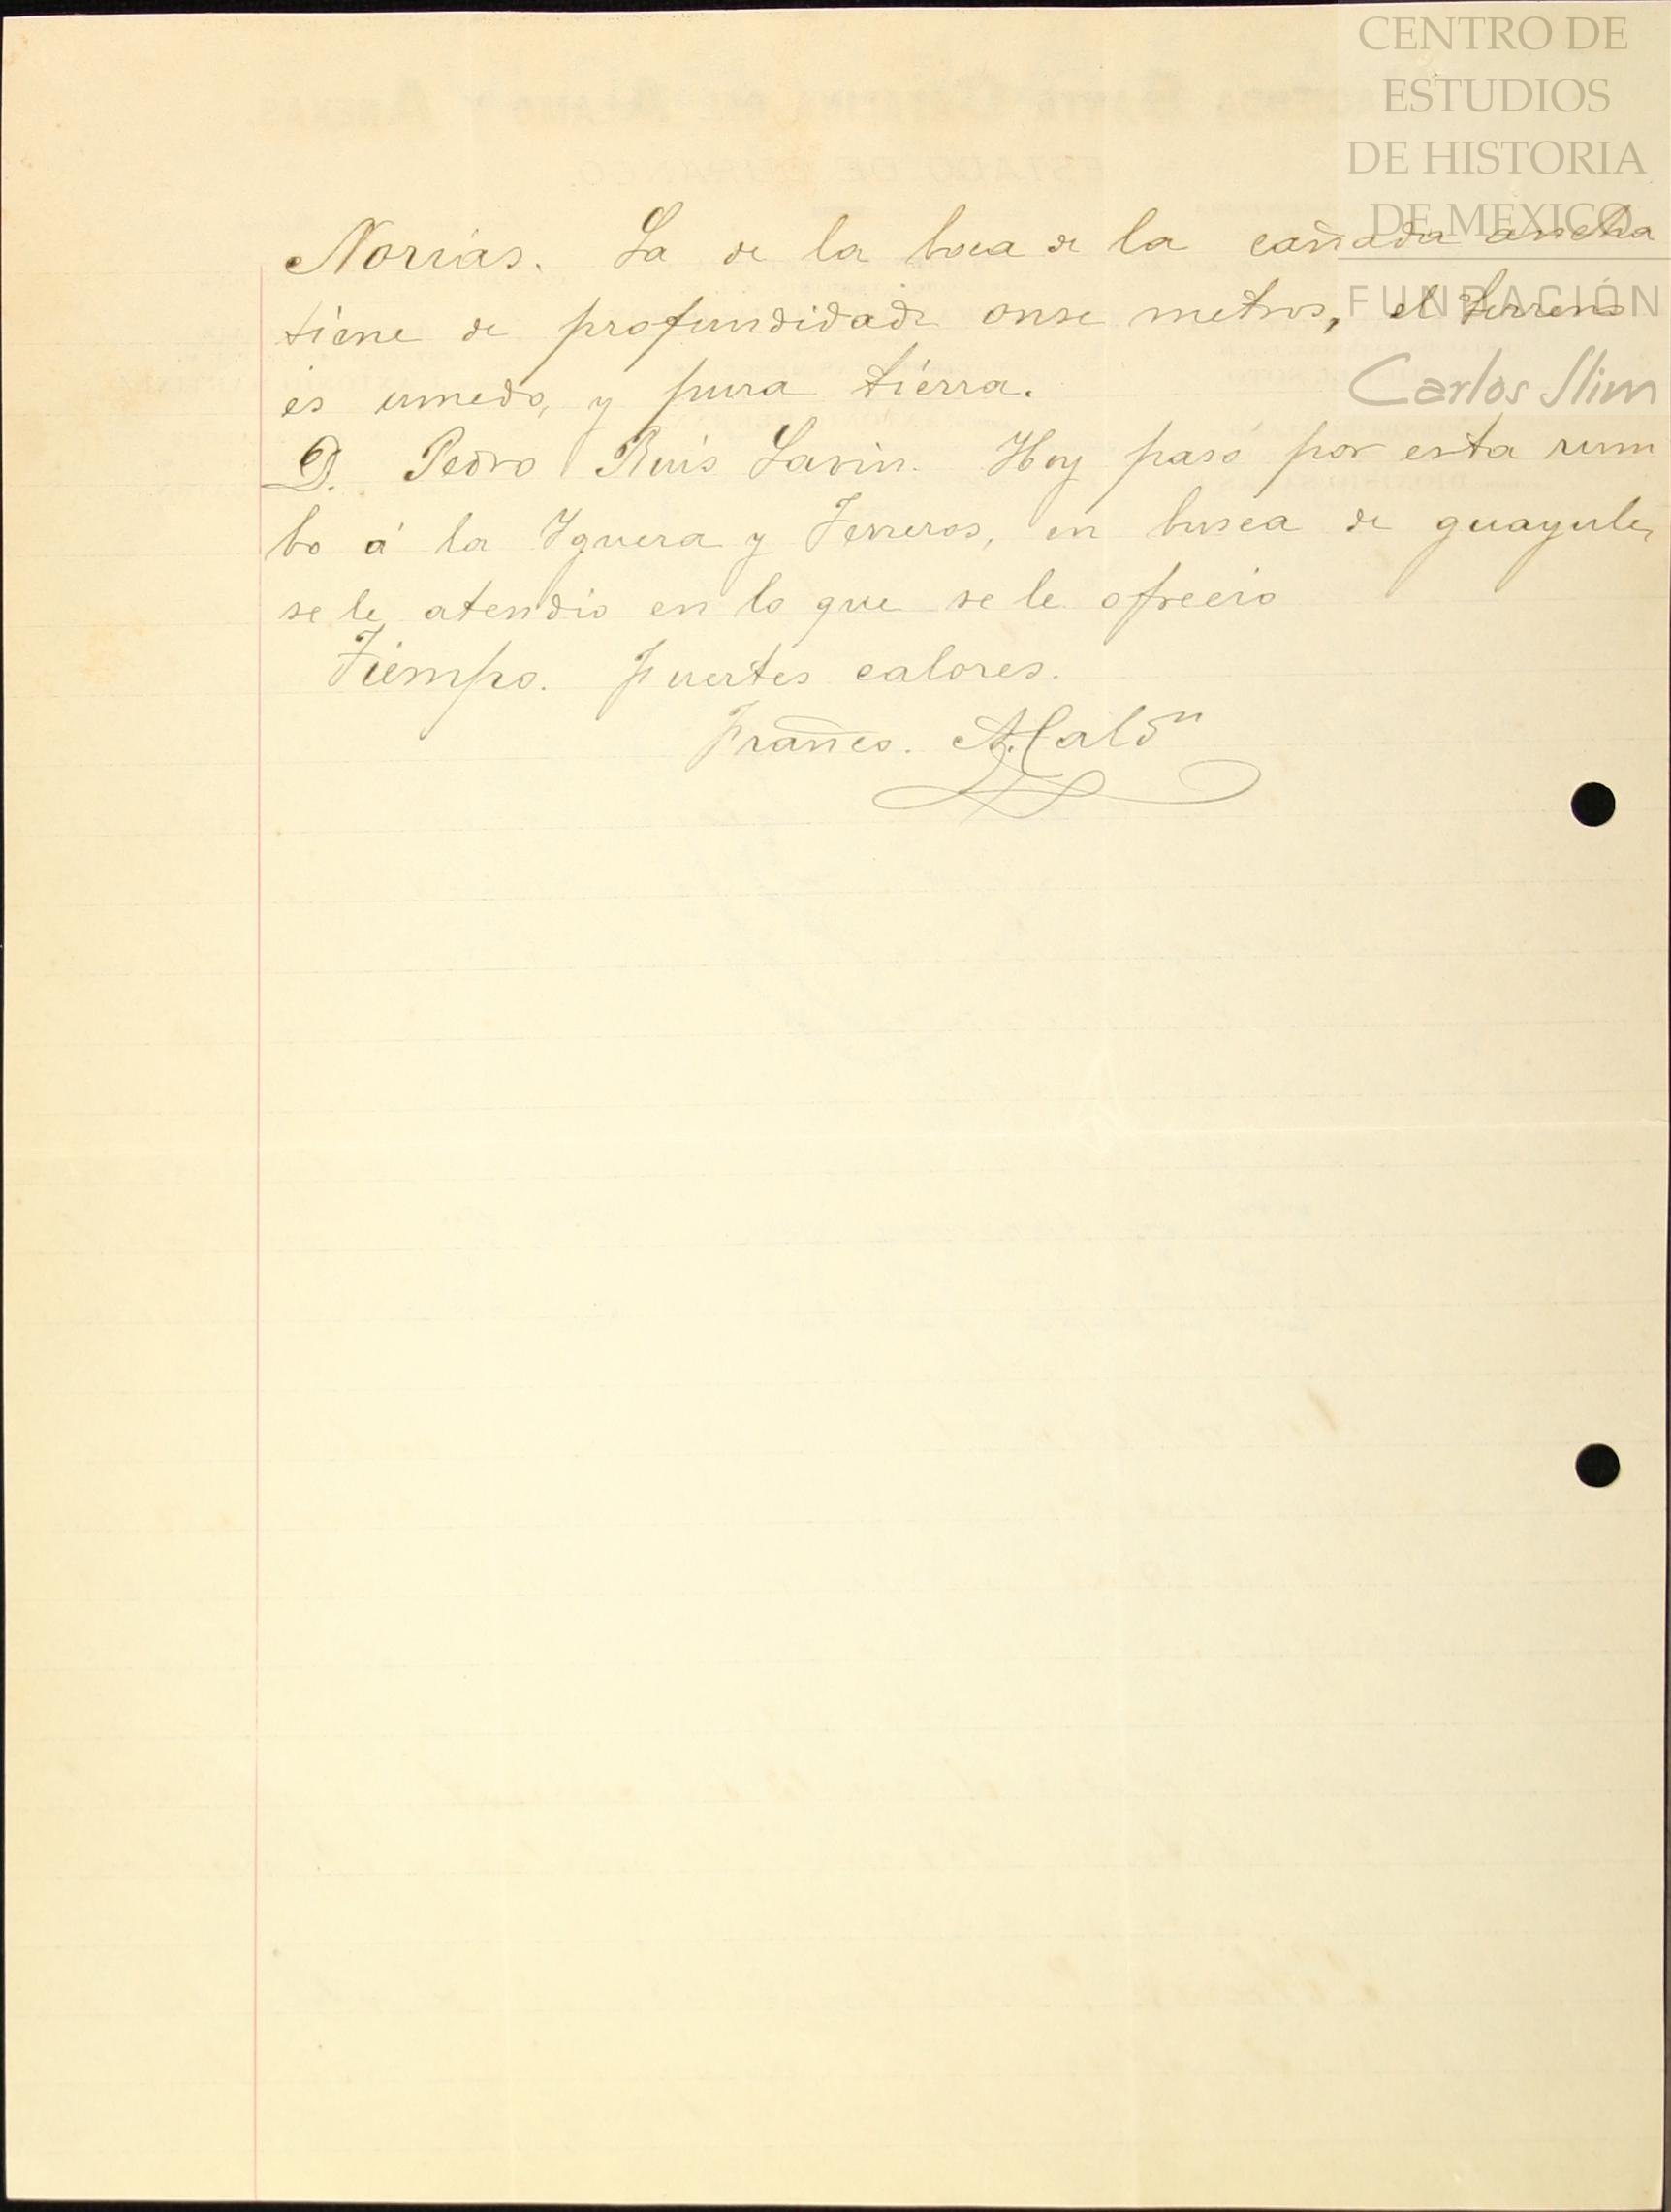 CENTRO DE
ESTUDIOS
DE HISTORIA
DE MEXICO
FUNDACIÓN
Carlos Slim
Norias. La de la boca de la cañada ancha
tiene de profundidad onse metros, el terreno
es umedo, y pura tierra.
D. Pedro Ruis Lavin. Hoy pasó por esta rum
bo á la Yguera y Ferreros, en busca de guayule,
se le atendio en lo que se le ofrecio
Tiempo. Fuertes calores.